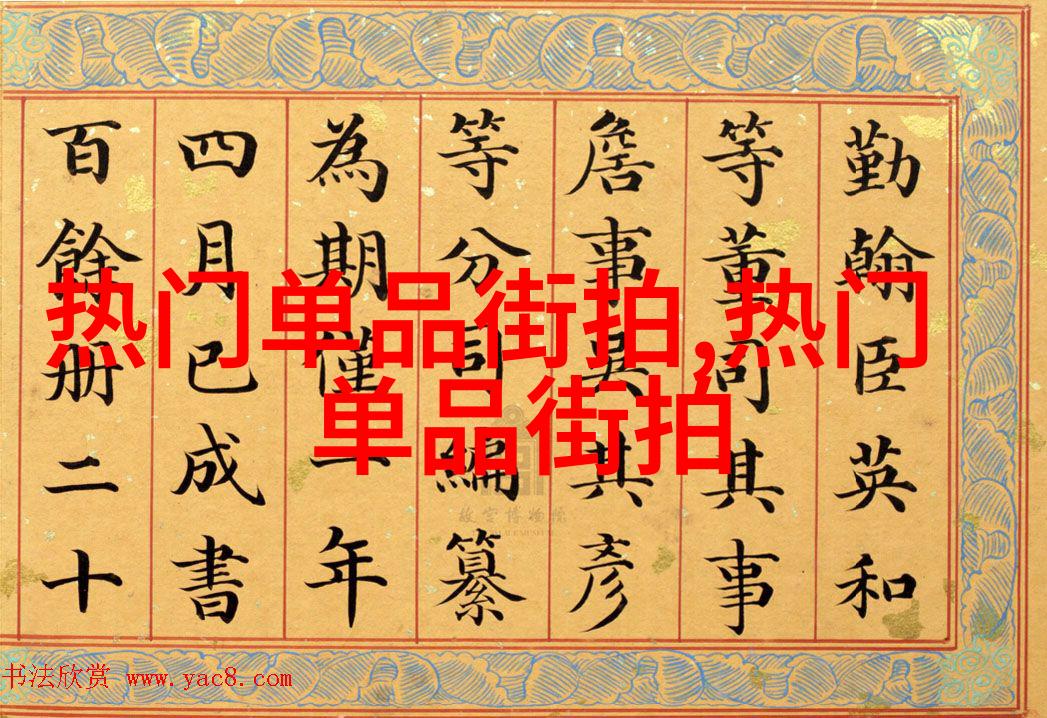 勤翰臣英和
等董司其事
詹事吳其彥
等分司編纂
為期僅一年
四月已成書
百餘冊二十
热门单品街拍,热门
单品街拍
故宫博物院
书法欣赏 www.yac8.com